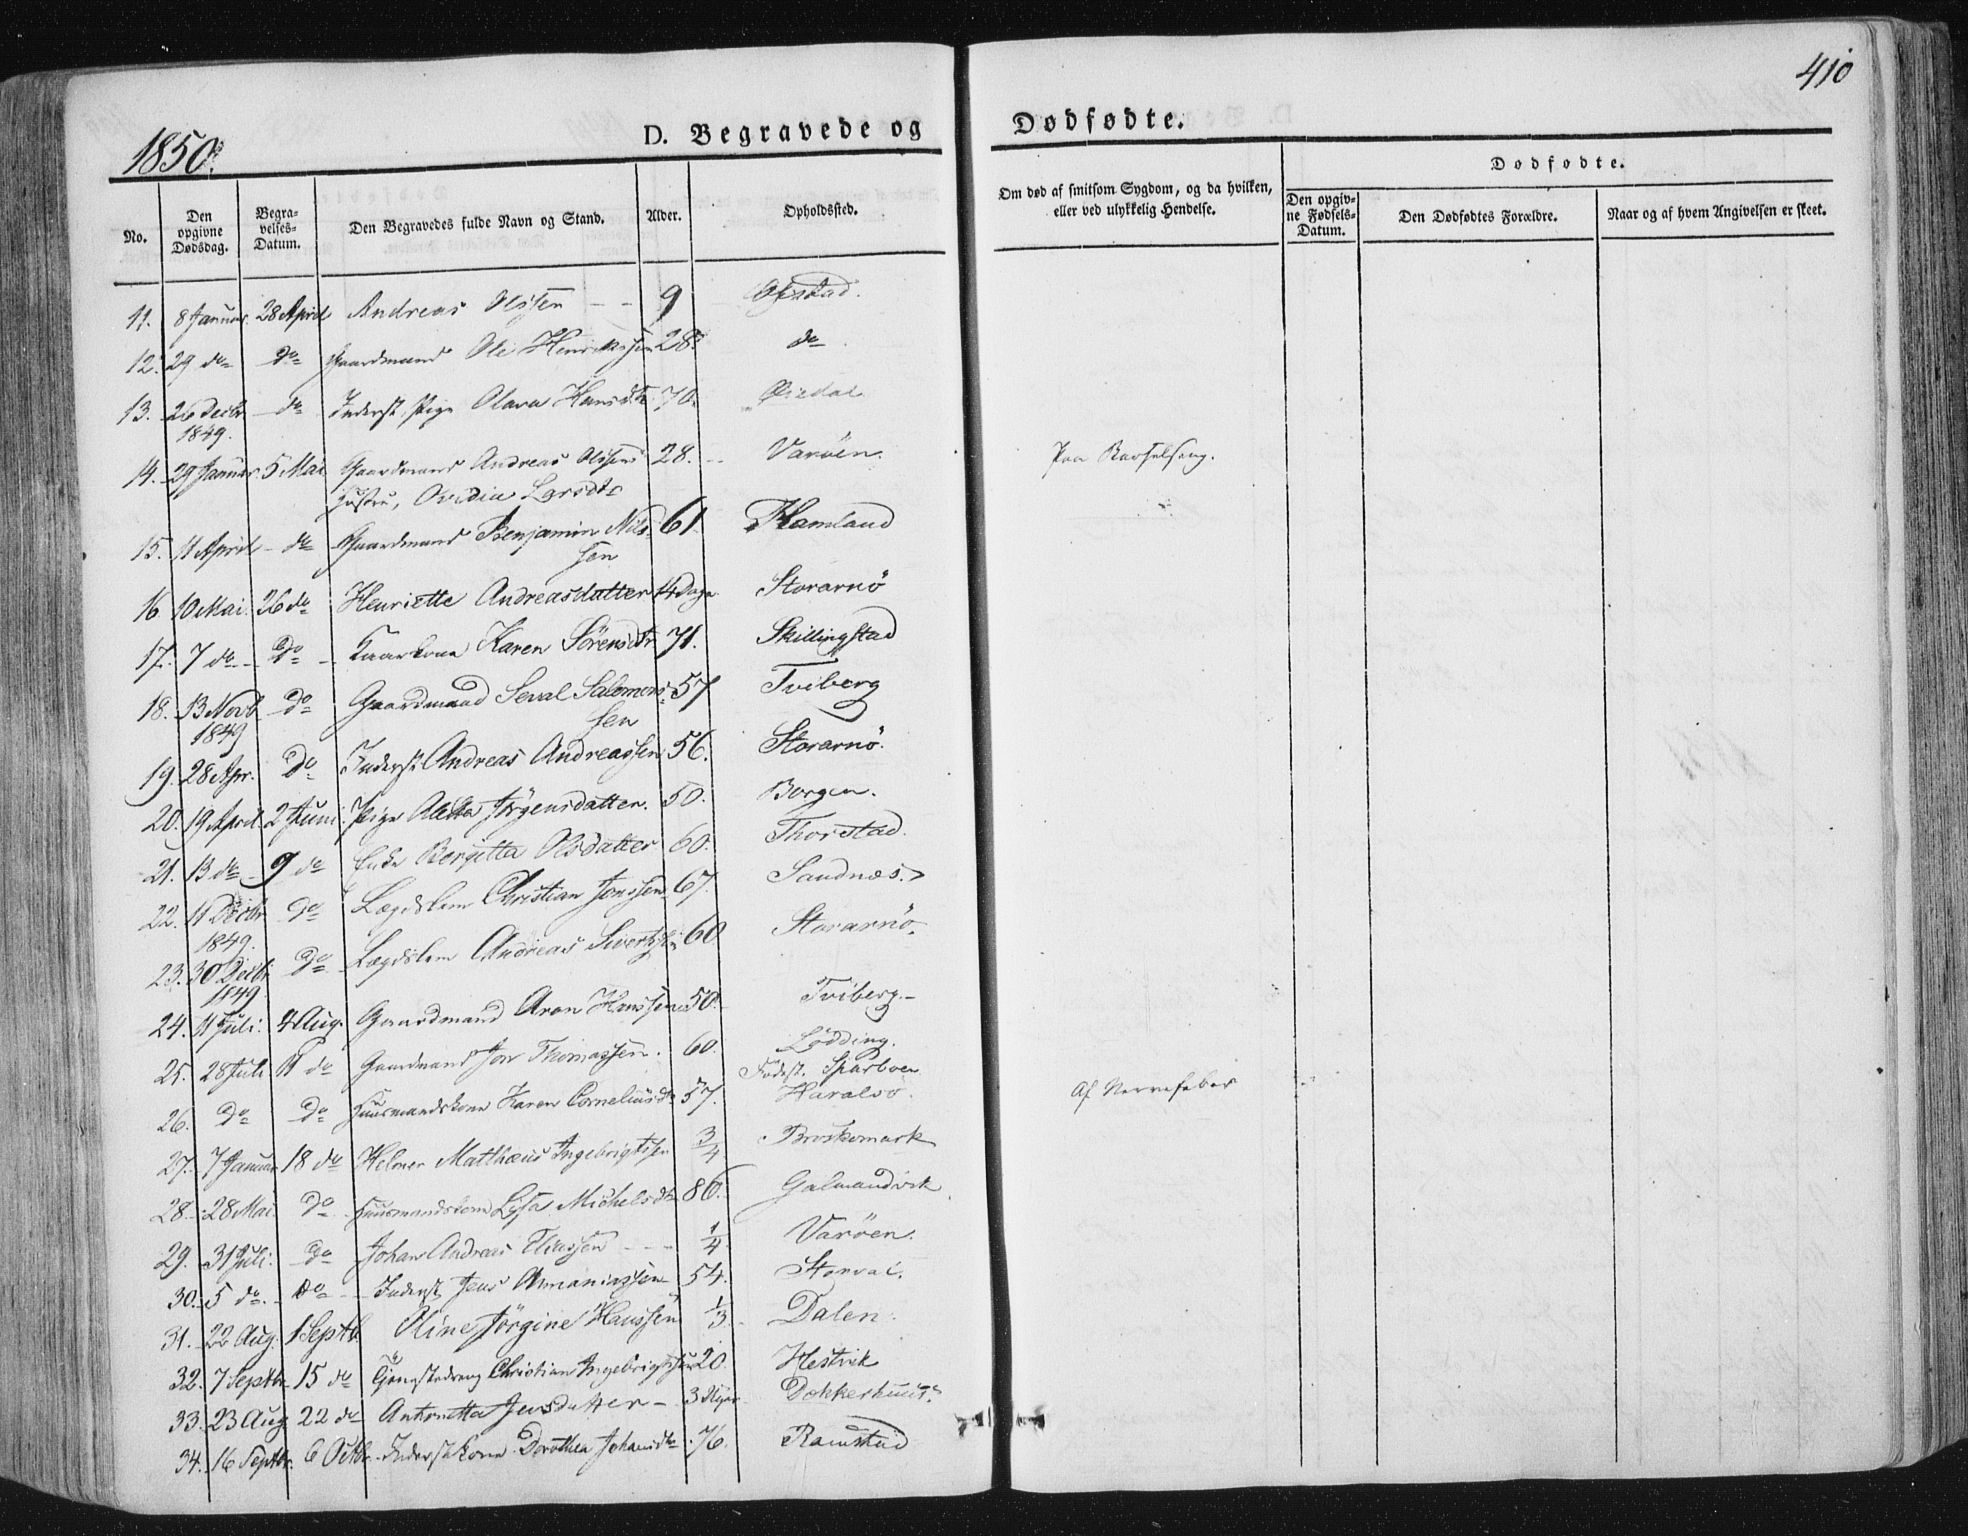 410
1850.
D. Begravede og Dødfødte.
No. | Den opgivne Dødsdag. | Begravelses-Datum. | Den Begravedes fulde Navn og Stand. | Alder. | Opholdssted. | Om død af smitsom Sygdom, og da hvilken, eller ved ulykkelig Hendelse. | Dødfødte. | Den opgivne Fødsels-Datum. | Den Dødfødtes Forældre. | Naar og af hvem Angivelsen er skeet.
11. 8 Januar. 28 April Andreas Olssen - - 9 Ofstad.
12. 29 do do Gaardmand Ole Henrikssen 28. do
13. 26 Decbr - do Inderst Pige Olava Hansdtr 70.
1849.
14. 29 Januar. 5 Mai Gaardmand Andreas Olssens 28. Varöen. Paa Barselseng.
Hustru, Ovidia Larsdtr
15. 11 April - do Gaardmand Benjamin Nils- 61. Hamland
sen
16. 10 Mai. 26 do Henriette Andreasdatter 14 Dage Storarnö
17. 7 do - do - Kaarkone Karen Sörensdtr 71. Skillingstad
18. 13 Novb do Gaardmand Seval Salomons- 57 Tviberg
1849 sen
19. 28 Apr. do Inderst Andreas Andreassen 56. Storarnö.
20. 19 April. 2 Juni Pige Aletta Jörgensdatter. 50. Borgen.
21. 13 do 9 do Enke Bergitta Olsdatter 60. Thorstad.
22. 11 Decbr do Lægdslem Christian Jonssen 67. Sandnes.
1849.
23. 30 Decbr do Lægdslem Andreas Sivertssen 60 Storarnö.
1849
24. 11 Juli. 4 Aug. Gaardmand Aron Hanssen 50. Tviberg.
25. 28 Juli 11 do Gaardmand Jon Thomassen. 60. Lödding.
Födest. Sparboen
26. do do Huusmandskone Karen Corneliusdtr 57. Haralsö. Af Nervefeber
27. 7 Januar 18 do Helmer Matthæus Ingebrigtssen 3/4 Broskomark
28. 28 Mai. do Huusmandskone Lisa Michelsdtr 86. Galmandvik
29. 31 Juli. do Johan Andreas Eliassen - - - 1/4 Varöen.
30. 5 do. do - Inderst Jens Ananiassen 54. Storval.
31. 22 Aug. 1 Septb Oline Jörgine Hanssen 1/3 Dalen.
32. 7 Septbr. 15 do Tjenestedreng Christian Ingebrigtssen 20. Hestvik
33. 23 Aug. 22 do Antonetta Jensdatter - 3 Uger Dokkerhuus.
34. 16 Septbr. 6 Octbr. Inderstkone Dorothea Johansdtr 76. Ramstad